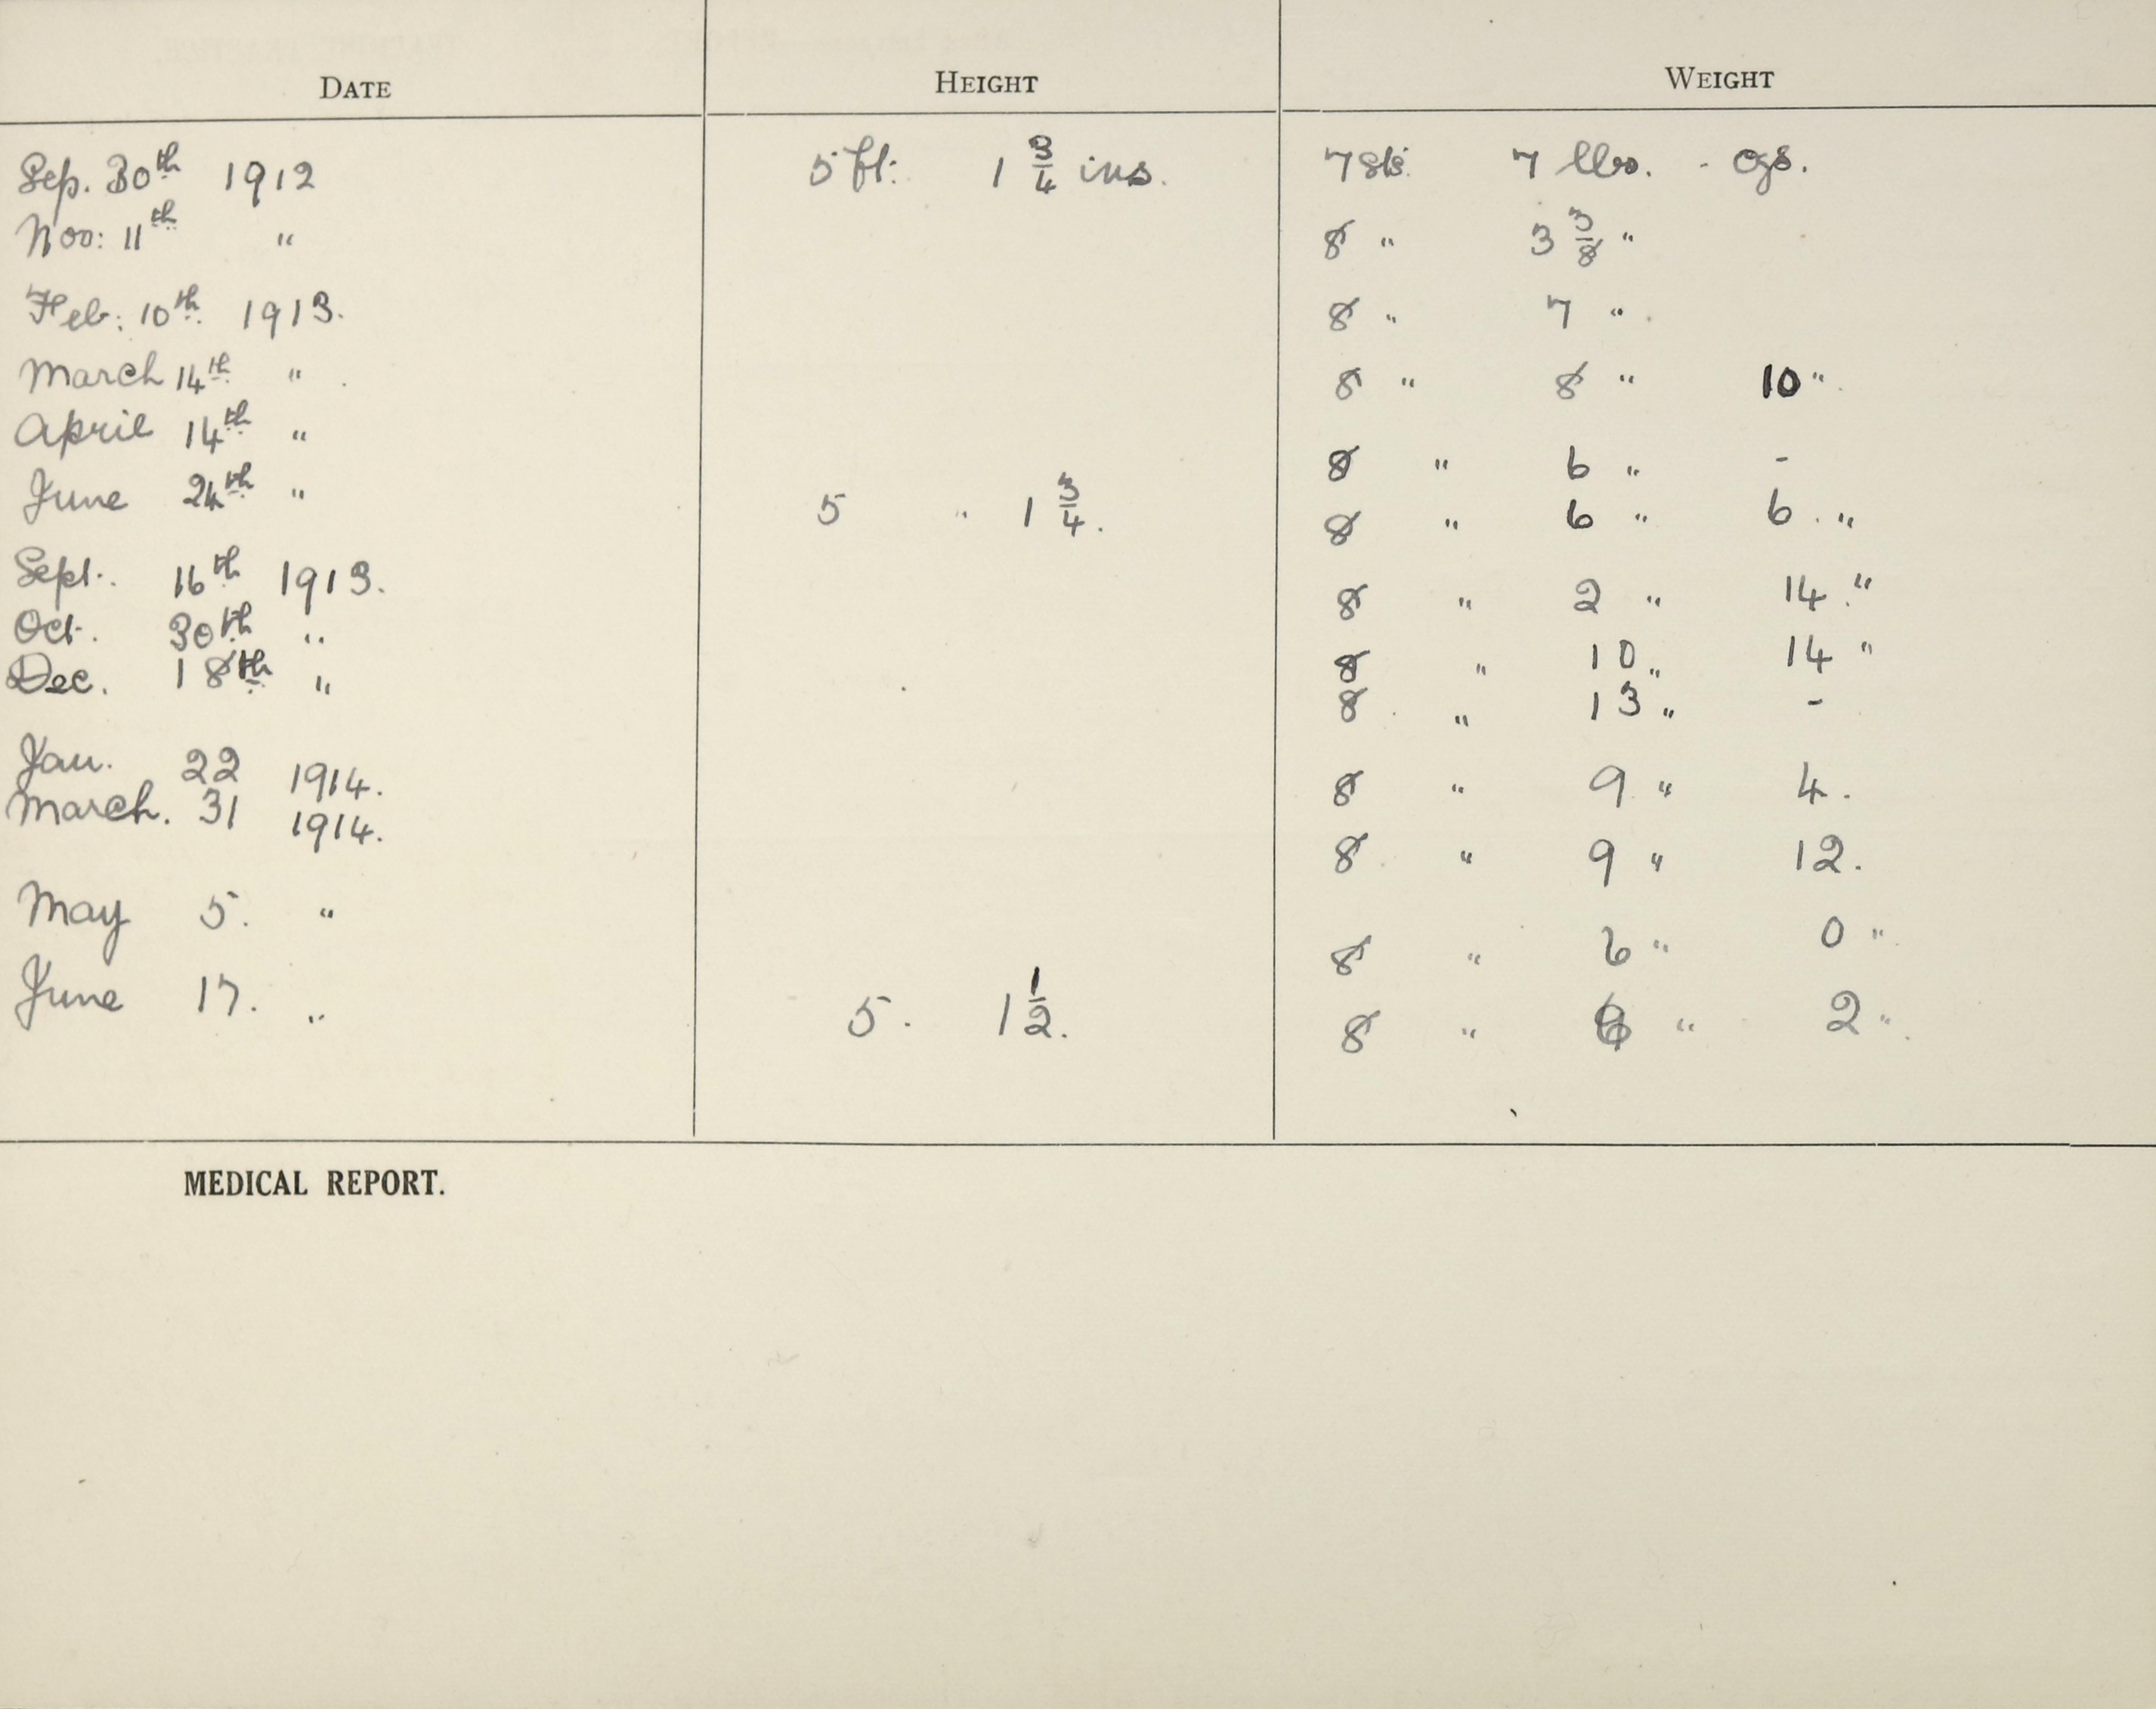 DATE HEIGHT WEIGHT
Sep. 30th 1912 5 ft: 1 3/4 ins. 7 sts. 7 lbs. - ozs.
Nov: 11th " 8 " 3 3/8 "
Feb: 10th 1913. 8 " 7 "
March 14th " 8 " 8 " 10 "
April 14th " 8 " 6 " -
June 24th " 5 " 1 3/4. 8 " 6 " 6 "
Sept. 16th 1913. 8 " 2 " 14 "
Oct. 30th " 8 " 10 " 14 "
Dec. 18th " 8 " 13 " -
Jan. 22 1914. 8 " 9 " 4.
March. 31 1914. 8 " 9 " 12.
May 5. " 8 " 6 " 0 "
June 17. " 5. 1 1/2. 8 " " 2 "
MEDICAL REPORT.